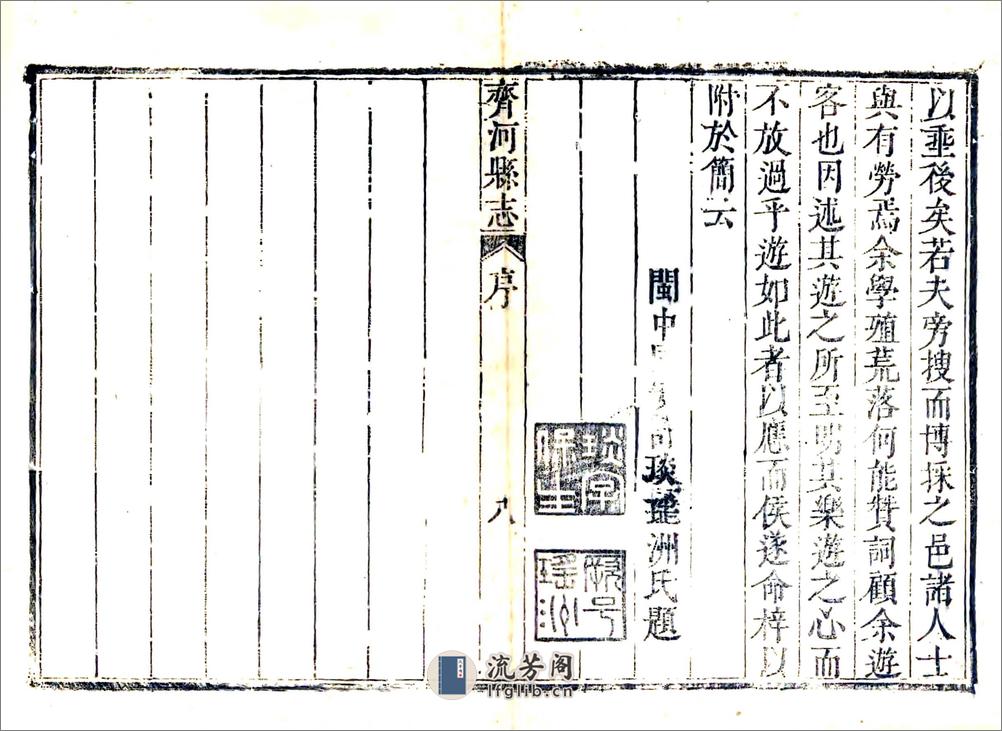 以垂後矣若夫旁搜而博採之邑諸人士
與有勞焉余學殖荒落何能贊詞顧余遊
客也因述其遊之所至明其樂遊之心而
不放過乎遊如此者以應而侯遂命梓以
附於簡云
閩中琰瑤洲氏題
琰字
保玉
別号
瑤洲
齊河縣志
序
八
流芳阁
lfglib.cn